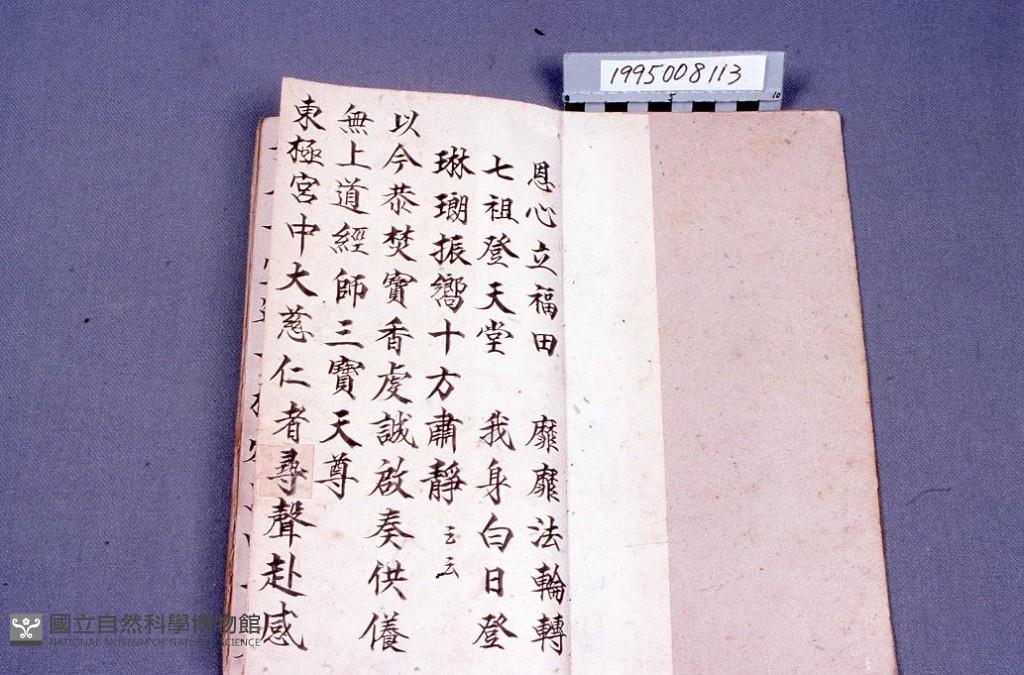 1995008113
恩心立福田 靡靡法輪轉
七祖登天堂 我身白日登
琳瑯振嚮十方肅靜 云云
以今恭焚寶香虔誠啟奏供養
無上道經師三寶天尊
東極宮中大慈仁者尋聲赴感
國立自然科學博物館
NATIONAL MUSEUM OF NATURAL SCIENCE